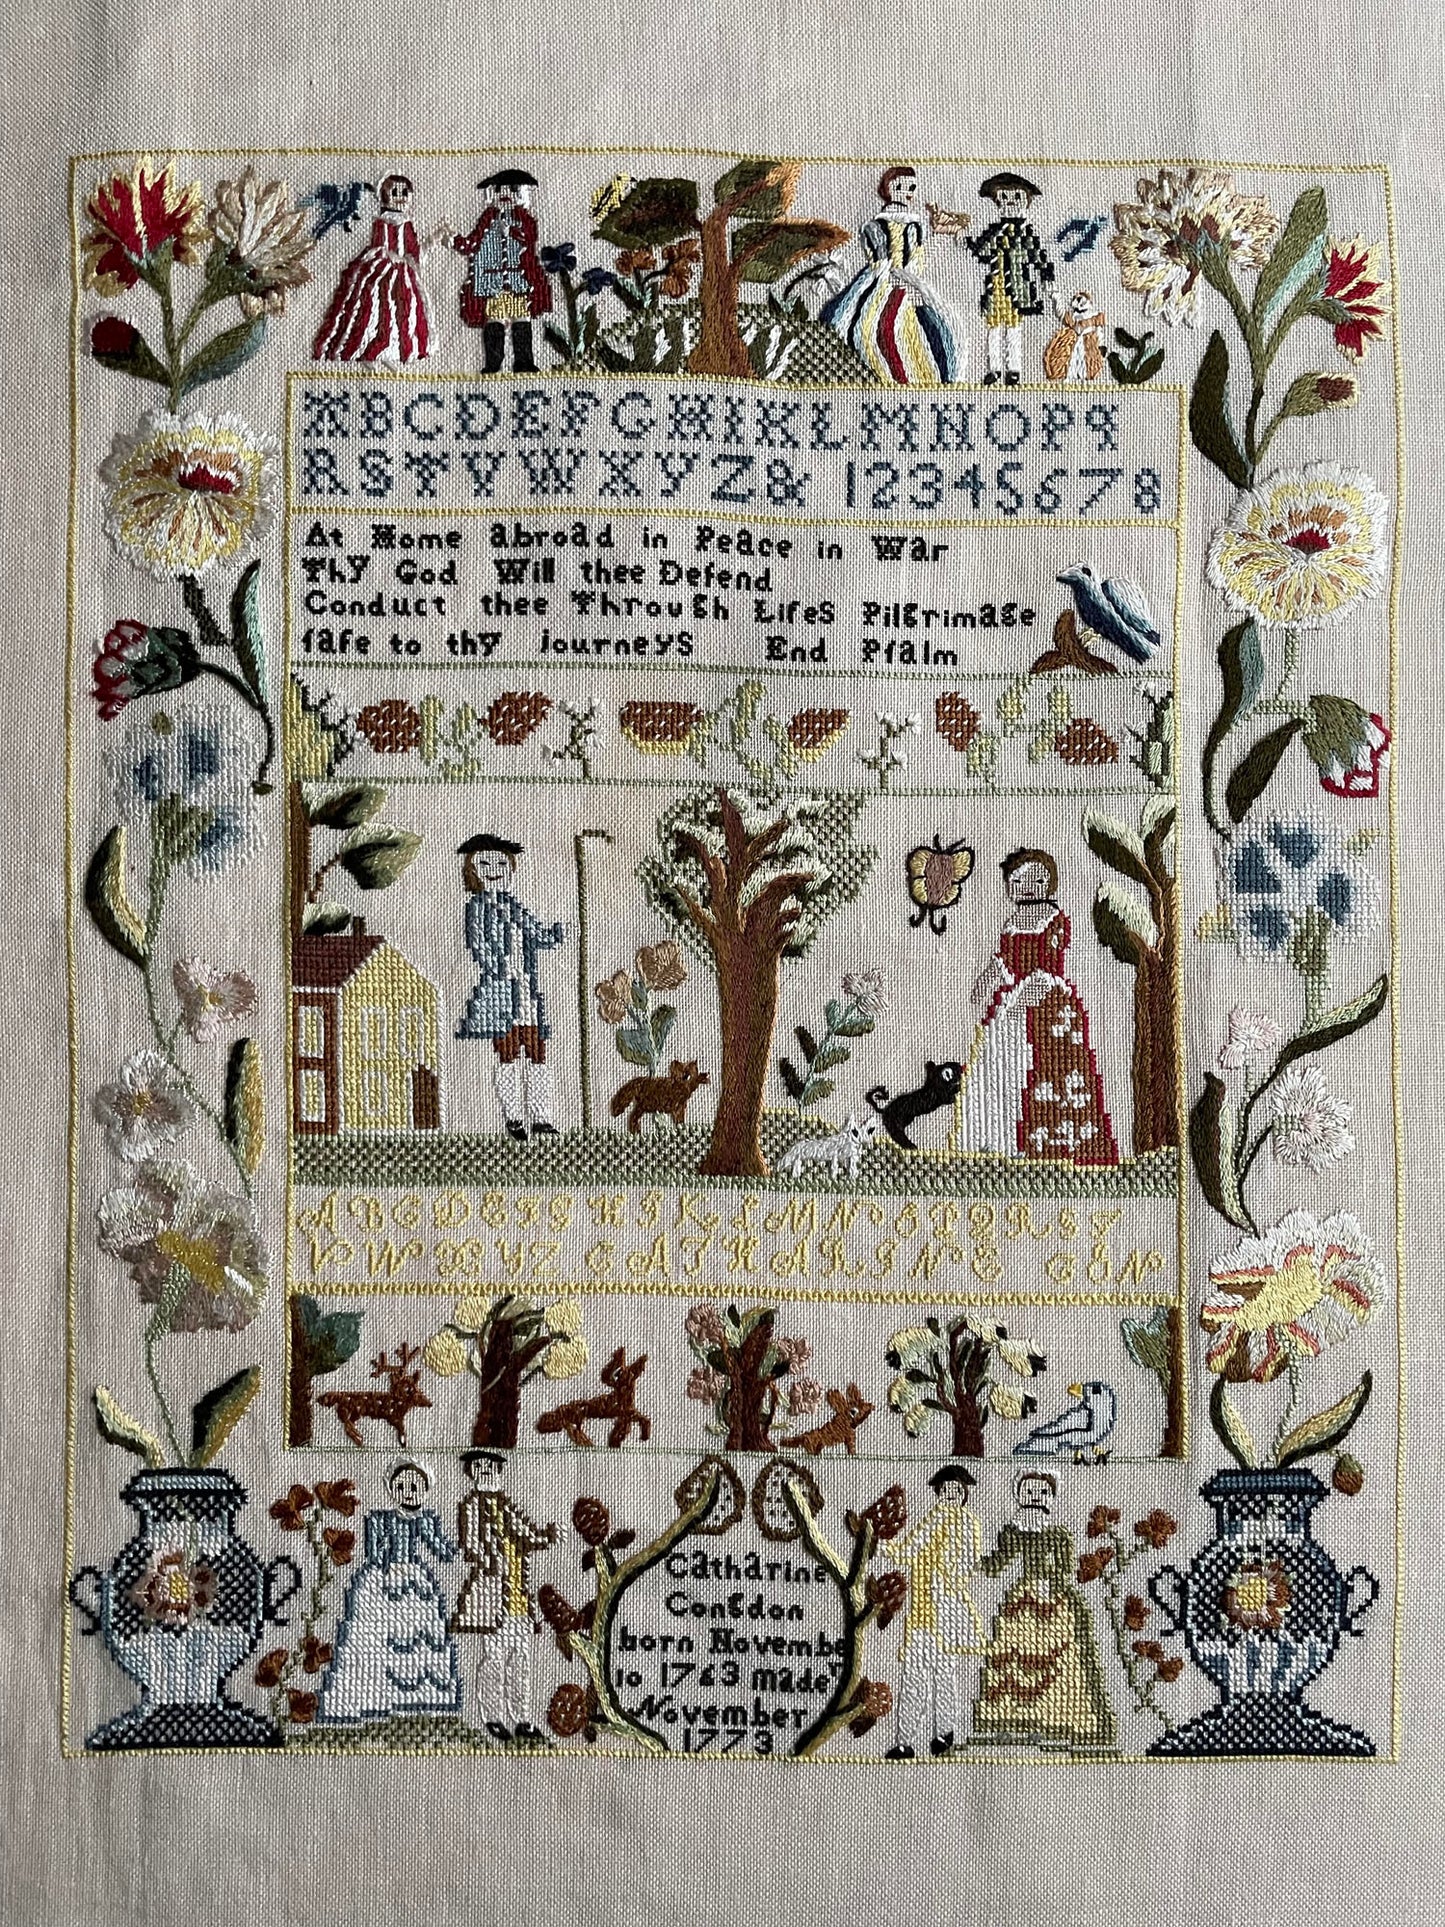 ABCDEFGHIKLMNOPQ
RSTVWXYZ& 12345678
At Home abroad in Peace in War
Thy God Will thee Defend
Conduct thee Through Lifes Pilgrimage
ſafe to thy journeys End Pſalm
ABCDEFGHIKLMNOPQRST
VWXYZ CATHARINE CON
Catharine
Congdon
born Novembe
10 1763 made r
November
1773